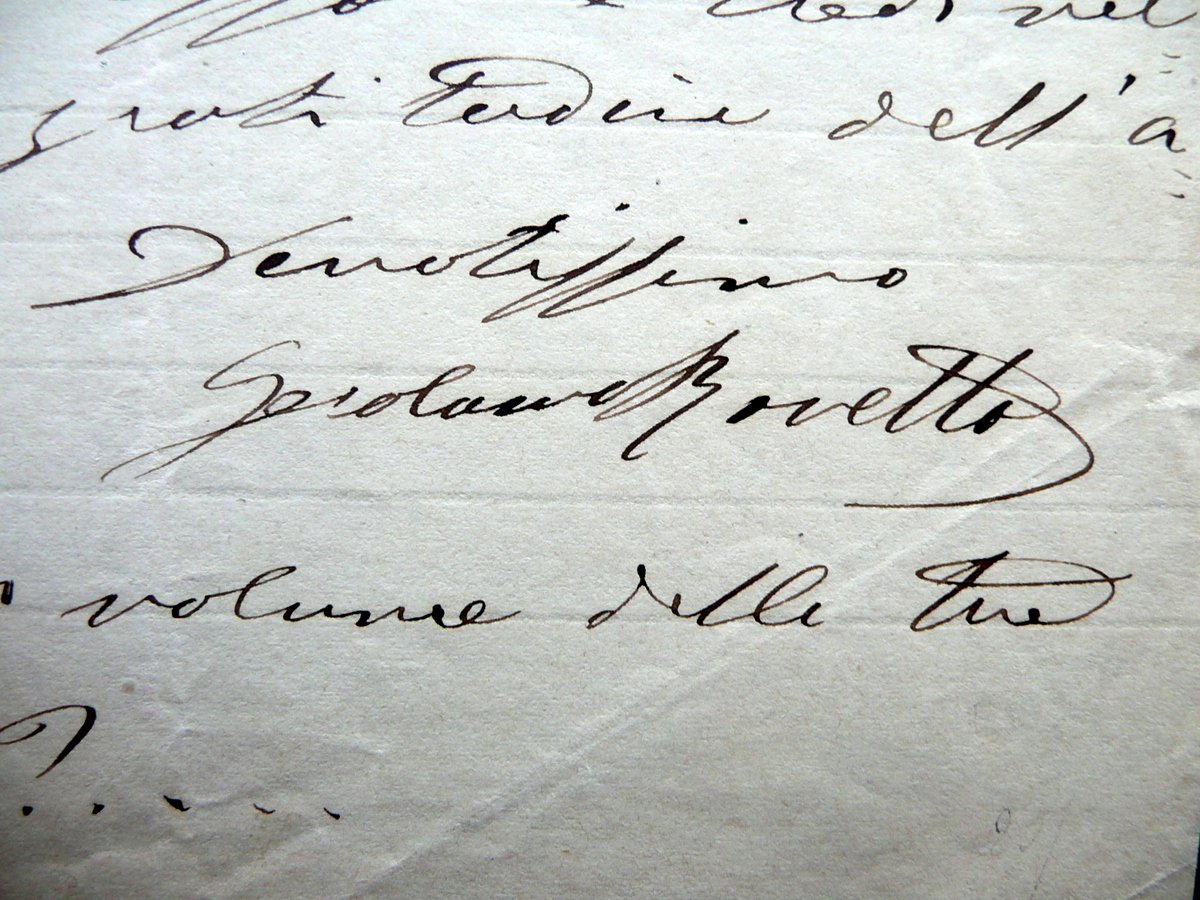 credi nel
gratitudine dell'a=
Devotissimo
Gerolamo Rovetta
volume delle tue
? . . . .